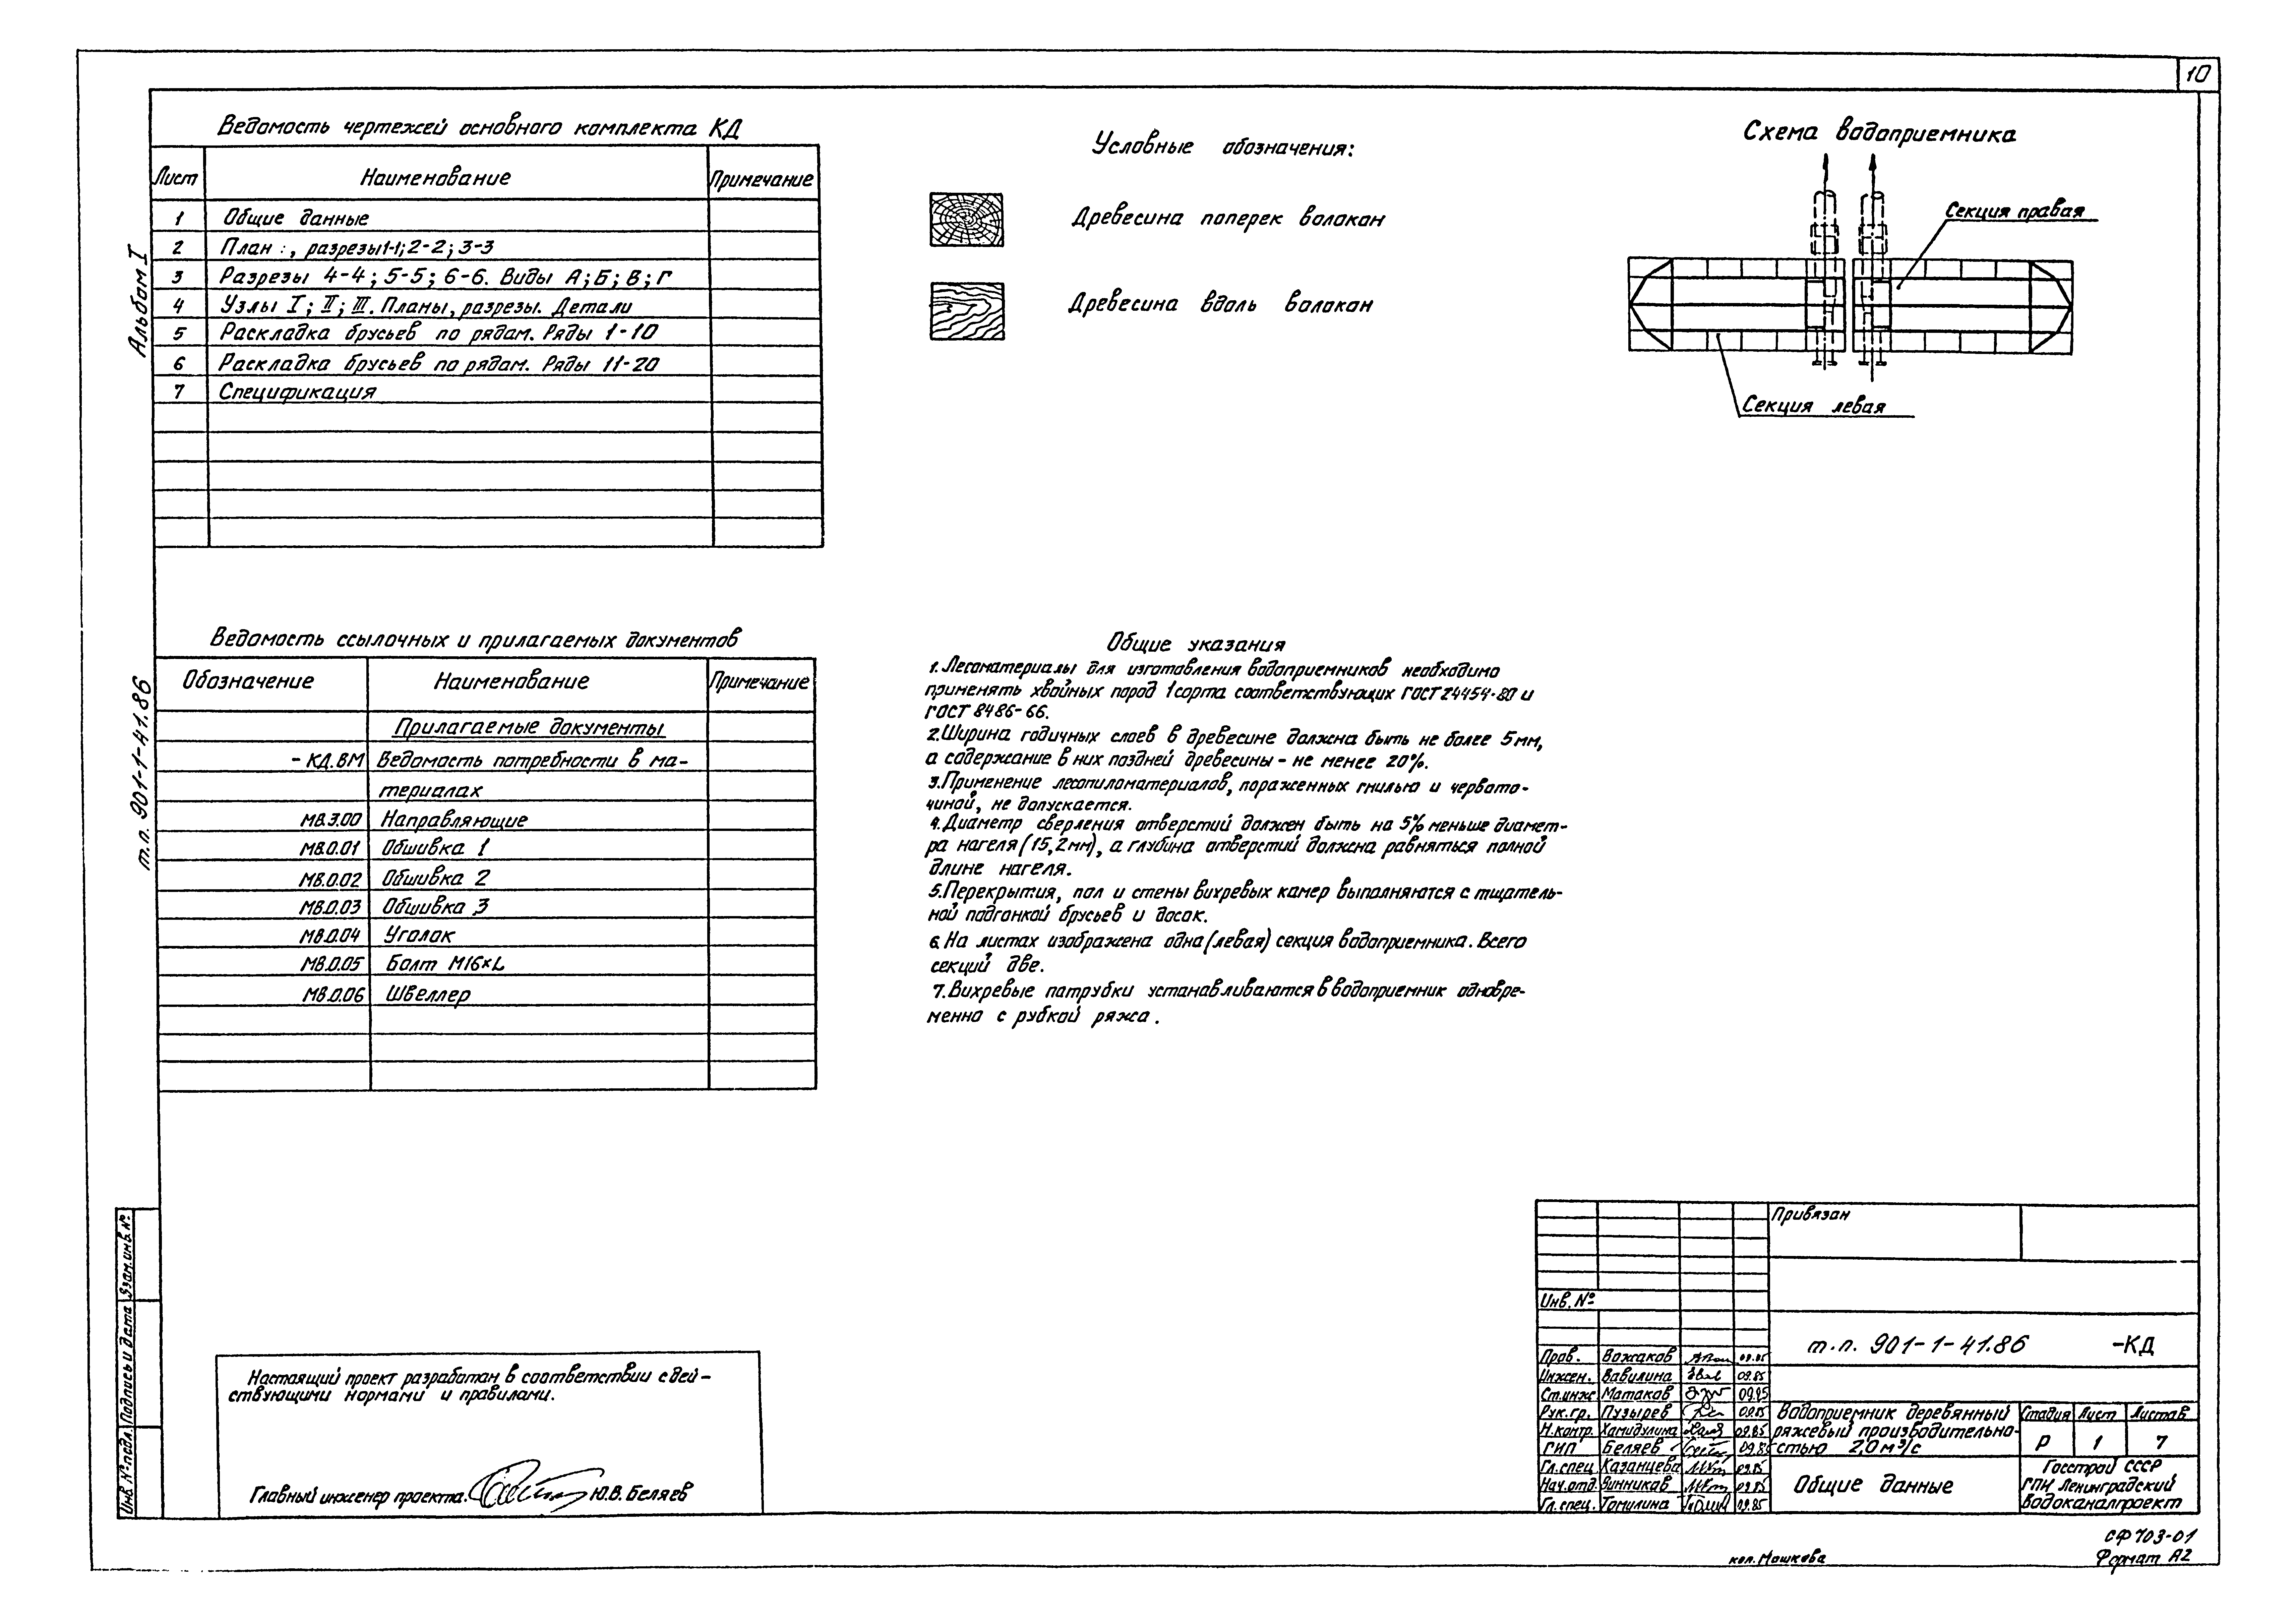 10
Ведомость чертежей основного комплекта КД
Лист Наименование Примечание
1 Общие данные
2 План :, разрезы 1-1; 2-2; 3-3
3 Разрезы 4-4; 5-5; 6-6. Виды А; Б; В; Г
4 Узлы I; II; III. Планы, разрезы. Детали
5 Раскладка брусьев по рядам. Ряды 1-10
6 Раскладка брусьев по рядам. Ряды 11-20
7 Спецификация
Условные обозначения:
Древесина поперек волокон
Древесина вдоль волокон
Схема водоприемника
Секция правая
Секция левая
Альбом I
т.п. 901-1-41.86
Ведомость ссылочных и прилагаемых документов
Обозначение Наименование Примечание
Прилагаемые документы
- КД.ВМ Ведомость потребности в ма-
териалах
МВ.3.00 Направляющие
МВ.0.01 Обшивка 1
МВ.0.02 Обшивка 2
МВ.0.03 Обшивка 3
МВ.0.04 Уголок
МВ.0.05 Болт М16×L
МВ.0.06 Швеллер
Общие указания
1. Лесоматериалы для изготовления водоприемников необходимо
применять хвойных пород 1 сорта соответствующих ГОСТ 24454-80 и
ГОСТ 8486-66.
2. Ширина годичных слоев в древесине должна быть не более 5 мм,
а содержание в них поздней древесины - не менее 20%.
3. Применение лесопиломатериалов, пораженных гнилью и червото-
чиной, не допускается.
4. Диаметр сверления отверстий должен быть на 5% меньше диамет-
ра нагеля (15,2 мм), а глубина отверстий должна равняться полной
длине нагеля.
5. Перекрытия, пол и стены вихревых камер выполняются с тщатель-
ной подгонкой брусьев и досок.
6. На листах изображена одна (левая) секция водоприемника. Всего
секций две.
7. Вихревые патрубки устанавливаются в водоприемник одновре-
менно с рубкой ряжа.
Инв. № подл. Подпись и дата Взам. инв. №
Настоящий проект разработан в соответствии с дей-
ствующими нормами и правилами.
Главный инженер проекта. Ю.В. Беляев
Привязан
Инв. №
т.п. 901-1-41.86 -КД
Пров. Вожаков 09.85
Инжен. Вавилина 09.85
Ст.инж Матаков 09.85
Рук.гр. Пузырев 09.85
Н.контр. Хамидулина 09.85
ГИП Беляев 09.85
Гл.спец Казанцева 09.85
Нач.отд. Винников 09.85
Гл.спец. Томилина 09.85
Водоприемник деревянный
ряжевый производительно-
стью 2,0 м³/с
Стадия Лист Листов
Р 1 7
Общие данные
Госстрой СССР
ГПИ Ленинградский
Водоканалпроект
СФ 703-01
кол. Машкова
Формат А2